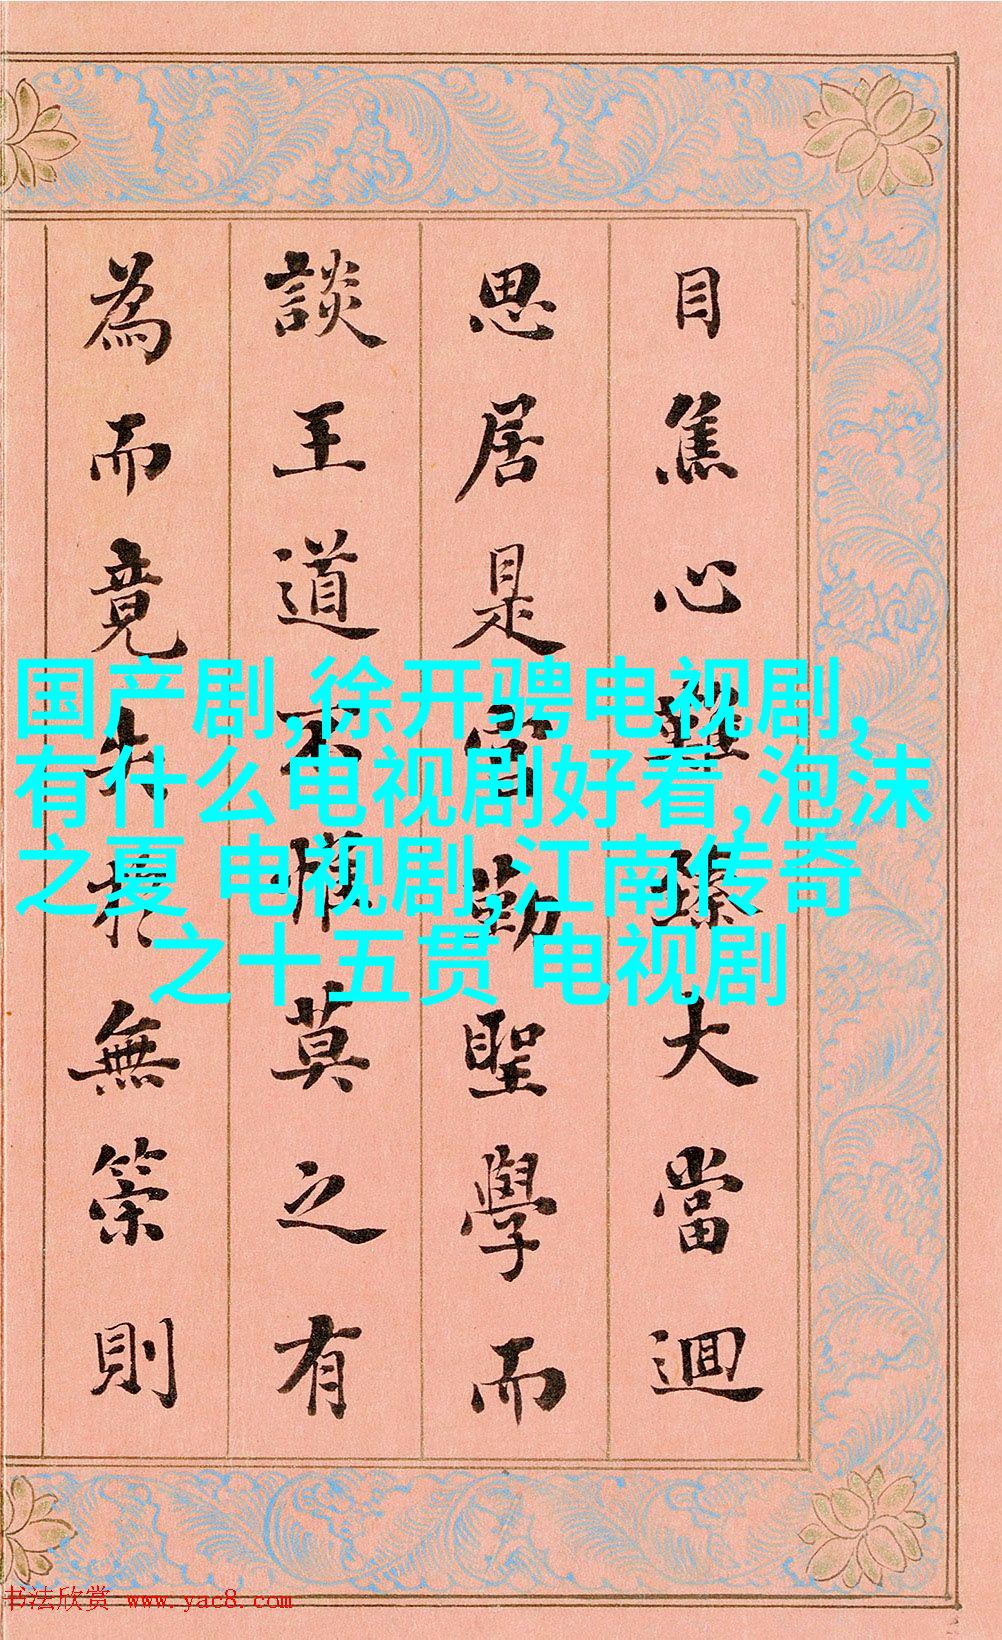 目焦心臻大當迴
思居是勤聖學而
談王道不莫之有
為而竟失於無策則
国产剧,徐开骋电视剧,
有什么电视剧好看,泡沫
之夏 电视剧,江南传奇
之十五贯 电视剧
书法欣赏 www.yac8.com